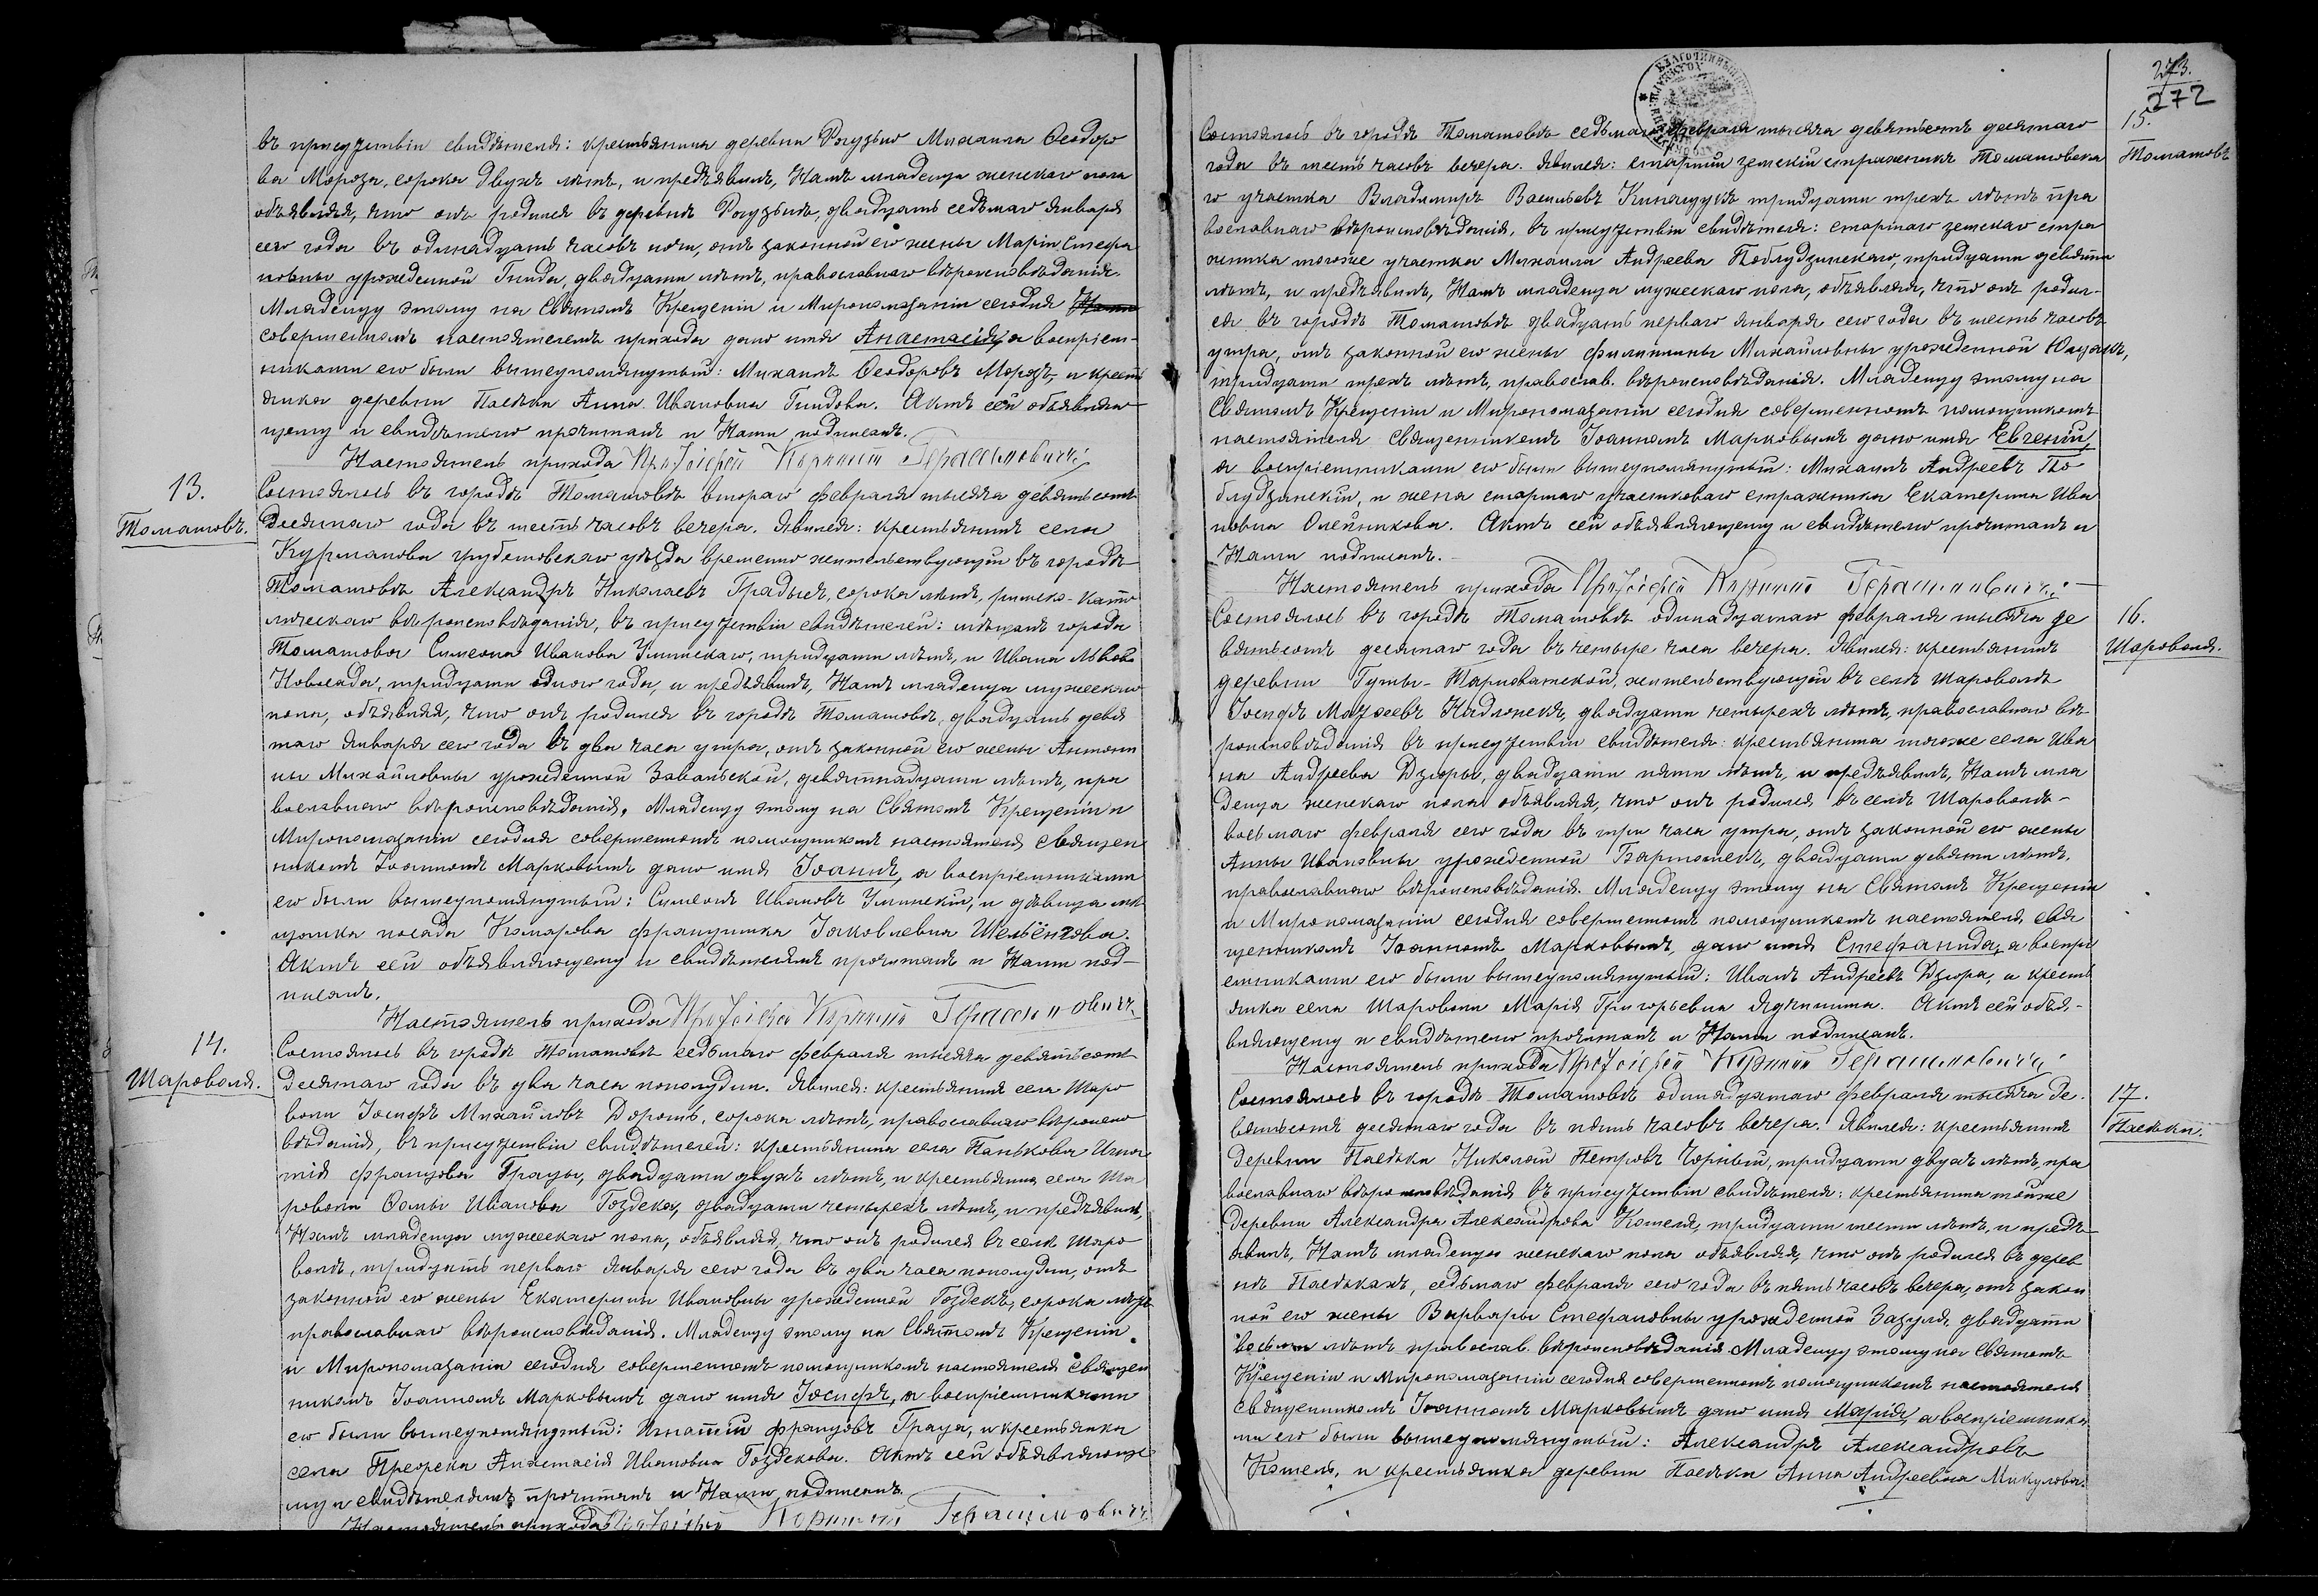 въ присутствіи свидѣтеля: крестьянина деревни Рогузьно Михаила Ѳеодоро
ва Мороза, сорока двухъ лѣтъ, и предъявилъ Намъ младенца женскаго пола
объявляя, что онъ родился въ деревнѣ Рогузьнѣ, двадцать седьмаго января
сего года въ одинадцать часовъ ночи, отъ законной его жены Маріи Стефа
новны урожденной Гинда, двадцати лѣтъ, православнаго вѣроисповѣданія.
Младенцу этому на Святомъ Крещеніи и Миропомазаніи сегодня
совершенномъ настоятелемъ прихода дано имя Анастасія, а воспріем-
никами его были вышеупомянутый: Михаилъ Ѳеодоровъ Морозъ, и кресть
янка деревни Пасѣки Анна Ивановна Гиндова. Актъ сей объявляю
щему и свидѣтелю прочитанъ и Нами подписанъ.
Настоятель прихода Протоіерей Корнилій Герасимовичъ
13.
Томашовъ.
Состоялось въ городѣ Томашовѣ втораго февраля тысяча девятьсотъ
десятаго года въ шесть часовъ вечера. Явился: крестьянинъ села
Курманова грубешовскаго уѣзда временно жительствующій въ городѣ
Томашовѣ Александръ Николаевъ Градыль, сорока лѣтъ, римско-като
лическаго вѣроисповѣданія, въ присутствіи свидѣтелей: мѣщанъ города
Томашова Симеона Иванова Улинскаго, тридцати лѣтъ, и Ивана Львова
Новосада, тридцати одного года, и предъявилъ Намъ младенца мужескаго
пола, объявляя, что онъ родился въ городѣ Томашовѣ, двадцать девя
таго января сего года въ два часа утра, отъ законной его жены Антони
ны Михайловны урожденной Завальской, девятнадцати лѣтъ, пра
вославнаго вѣроисповѣданія. Младенцу этому на Святомъ Крещеніи и
Миропомазаніи сегодня совершенномъ помощникомъ настоятеля священ
никомъ Іоанномъ Марковымъ дано имя Іоаннъ, а воспріемниками
его были вышеупомянутый: Симеонъ Ивановъ Улинскій, и дѣвица мѣ
щанка посада Комарова Францишка Іаковлевна
Актъ сей объявляющему и свидѣтелямъ прочитанъ и Нами под-
писанъ.
Настоятель прихода Протоіерей Корнилій Герасимовичъ
14.
Шароволя.
Состоялось въ городѣ Томашовѣ седьмаго февраля тысяча девятьсотъ
десятаго года въ два часа пополудни. Явился: крестьянинъ села Шаро
воли Іосифъ Михайловъ Дорошъ, сорока лѣтъ, православнаго вѣроиспо
вѣданія, въ присутствіи свидѣтелей: крестьянина села Панькова Игна
тія Францова Грацы, двадцати двухъ лѣтъ, и крестьянина села Ша
роволи Ѳомы Иванова Гоздека, двадцати четырехъ лѣтъ, и предъявилъ
Намъ младенца мужескаго пола, объявляя, что онъ родился въ селѣ Шаро
волѣ, тридцать перваго января сего года въ два часа пополудни, отъ
законной его жены Екатерины Ивановны урожденной Гоздекъ, сорока лѣтъ
православнаго вѣроисповѣданія. Младенцу этому на Святомъ Крещеніи
и Миропомазаніи сегодня совершенномъ помощникомъ настоятеля священ
никомъ Іоанномъ Марковымъ дано имя Іосифъ, а воспріемниками
его были вышеупомянутый: Игнатій Францовъ Граца, и крестьянка
села Преорска Анастасія Ивановна Гоздекова. Актъ сей объявляюще
му и свидѣтелямъ прочитанъ и Нами подписанъ.
Настоятель прихода Протоіерей Корнилій Герасимовичъ
273.
272
15.
Томашовъ
Состоялось въ городѣ Томашовѣ седьмаго февраля тысяча девятьсотъ десятаго
года въ шесть часовъ вечера. Явился: старшій земскій стражникъ Томашовска
го участка Владимиръ Васильевъ Кинащукъ тридцати трехъ лѣтъ пра
вославнаго вѣроисповѣданія, въ присутствіи свидѣтеля: старшаго земскаго стра
жника тогоже участка Михаила Андреева Поблудзинскаго, тридцати девяти
лѣтъ, и предъявилъ Намъ младенца мужескаго пола, объявляя, что онъ родил-
ся въ городѣ Томашовѣ двадцать перваго января сего года въ шесть часовъ
утра, отъ законной его жены Филипины Михайловны урожденной Ющакъ,
тридцати трехъ лѣтъ, православ. вѣроисповѣданія. Младенцу этому на
Святомъ Крещеніи и Миропомазаніи сегодня совершенномъ помощникомъ
настоятеля священникомъ Іоанномъ Марковымъ дано имя Евгеній,
а воспріемниками его были вышеупомянутый: Михаилъ Андреевъ По
блудзинскій, и жена старшаго участковаго стражника Екатерина Ива
новна Олейникова. Актъ сей объявляющему и свидѣтелю прочитанъ и
Нами подписанъ.
Настоятель прихода Протоіерей Корнилій Герасимовичъ
16.
Шароволя.
Состоялось въ городѣ Томашовѣ одинадцатаго февраля тысяча де
вятьсотъ десятаго года въ четыре часа вечера. Явился: крестьянинъ
деревни Гуты-Тарноватской, жительствующій въ селѣ Шароволѣ
Іосифъ Матѳеевъ Кадлонекъ, двадцати четырехъ лѣтъ, православнаго вѣ
роисповѣданія въ присутствіи свидѣтеля: крестьянина тогоже села Ива
на Андреева Дзюры, двадцати пяти лѣтъ, и предъявилъ Намъ мла
денца женскаго пола объявляя, что онъ родился въ селѣ Шароволѣ-
восьмаго февраля сего года въ три часа утра, отъ законной его жены
Анны Ивановны урожденной Бартошекъ, двадцати девяти лѣтъ,
православнаго вѣроисповѣданія. Младенцу этому на Святомъ Крещеніи
и Миропомазаніи сегодня совершенномъ помощникомъ настоятеля свя
щенникомъ Іоанномъ Марковымъ, дано имя Стефанида, а воспрі
емниками его были вышеупомянутый: Иванъ Андреевъ Дзюра, и кресть
янка села Шароволи Марія Григорьевна Ядчишина. Актъ сей объя-
вляющему и свидѣтелю прочитанъ и Нами подписанъ.
Настоятель прихода Протоіерей Корнилій Герасимовичъ
17.
Пасѣки.
Состоялось въ городѣ Томашовѣ одинадцатаго февраля тысяча де-
вятьсотъ десятаго года въ пять часовъ вечера. Явился: крестьянинъ
деревни Пасѣки Николай Петровъ Чорный, тридцати двухъ лѣтъ, пра
вославнаго вѣроисповѣданія въ присутствіи свидѣтеля: крестьянина тойже
деревни Александра Александрова Кэтеля, тридцати шести лѣтъ, и предъ-
явилъ, Намъ младенца женскаго пола объявляя, что онъ родился въ дерев
нѣ Пасѣкахъ, седьмаго февраля сего года въ пять часовъ вечера, отъ закон
ной его жены Варвары Стефановны урожденной Зазуля, двадцати
восьми лѣтъ православ. вѣроисповѣданія. Младенцу этому на Святомъ
Крещеніи и Миропомазаніи сегодня совершенномъ помощникомъ настоятеля
священникомъ Іоанномъ Марковымъ дано имя Марія, а воспріемника
ми его были вышеупомянутый: Александръ Александровъ
Кэтель, и крестьянка деревни Пасѣки Анна Андреевна Микулова.